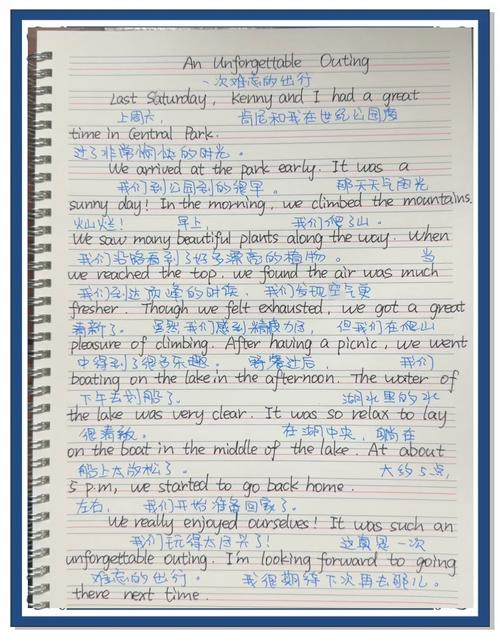 An Unforgettable Outing
一次难忘的出行
Last Saturday, Kenny and I had a great
上周六, 肯尼和我在世纪公园度
time in Central Park.
过了非常愉快的时光。
We arrived at the park early. It was a
我们到公园到的很早。 那天天气阳光
sunny day! In the morning, we climbed the mountains.
灿烂! 早上, 我们爬了山。
We saw many beautiful plants along the way. When
我们沿路看到了好多漂亮的植物。 当
we reached the top, we found the air was much
我们到达顶峰的时候, 我们发现空气更
fresher. Though we felt exhausted, we got a great
清新了。 虽然我们感到精疲力尽, 但我们在爬山
pleasure of climbing. After having a picnic, we went
中得到了很多乐趣。 野餐过后, 我们
boating on the lake in the afternoon. The water of
下午去划船了。 湖水里的水
the lake was very clear. It was so relax to lay
很清澈。 在湖中央, 躺在
on the boat in the middle of the lake. At about
船上太放松了。 大约5点,
5 p.m, we started to go back home.
左右, 我们开始准备回家了。
We really enjoyed ourselves! It was such an
我们玩得太尽兴了! 这真是一次
unforgettable outing. I'm looking forward to going
难忘的出行。 我很期待下次再去那儿。
there next time.